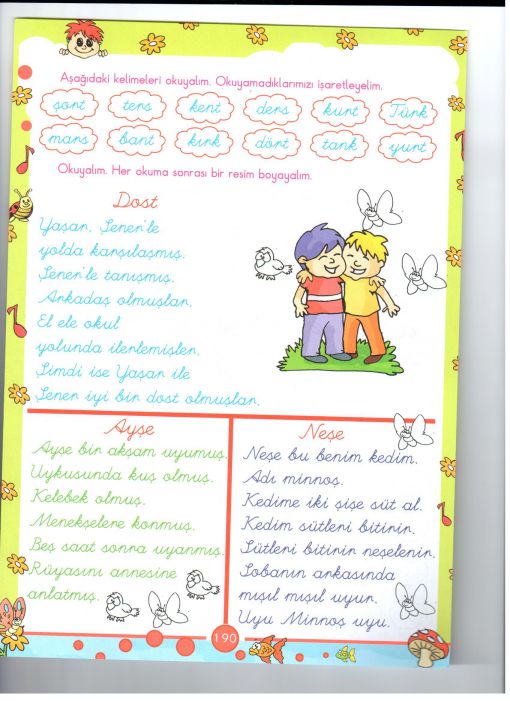 Aşağıdaki kelimeleri okuyalım. Okuyamadıklarımızı işaretleyelim.
şort ters kent ders kurt Türk
mars bant kırk dört tank yurt
Okuyalım. Her okuma sonrası bir resim boyayalım.
Dost
Yaşar, Şener'le
yolda karşılaşmış.
Şener'le tanışmış.
Arkadaş olmuşlar.
El ele okul
yolunda ilerlemişler.
Şimdi ise Yaşar ile
Şener iyi bir dost olmuşlar.
Ayşe
Ayşe bir akşam uyumuş.
Uykusunda kuş olmuş.
Kelebek olmuş.
Menekşelere konmuş.
Beş saat sonra uyanmış.
Rüyasını annesine
anlatmış.
Neşe
Neşe bu benim kedim.
Adı minnoş.
Kedime iki şişe süt al.
Kedim sütleri bitirir.
Sütleri bitirir neşelenir.
Sobanın arkasında
mışıl mışıl uyur.
Uyu Minnoş uyu.
190